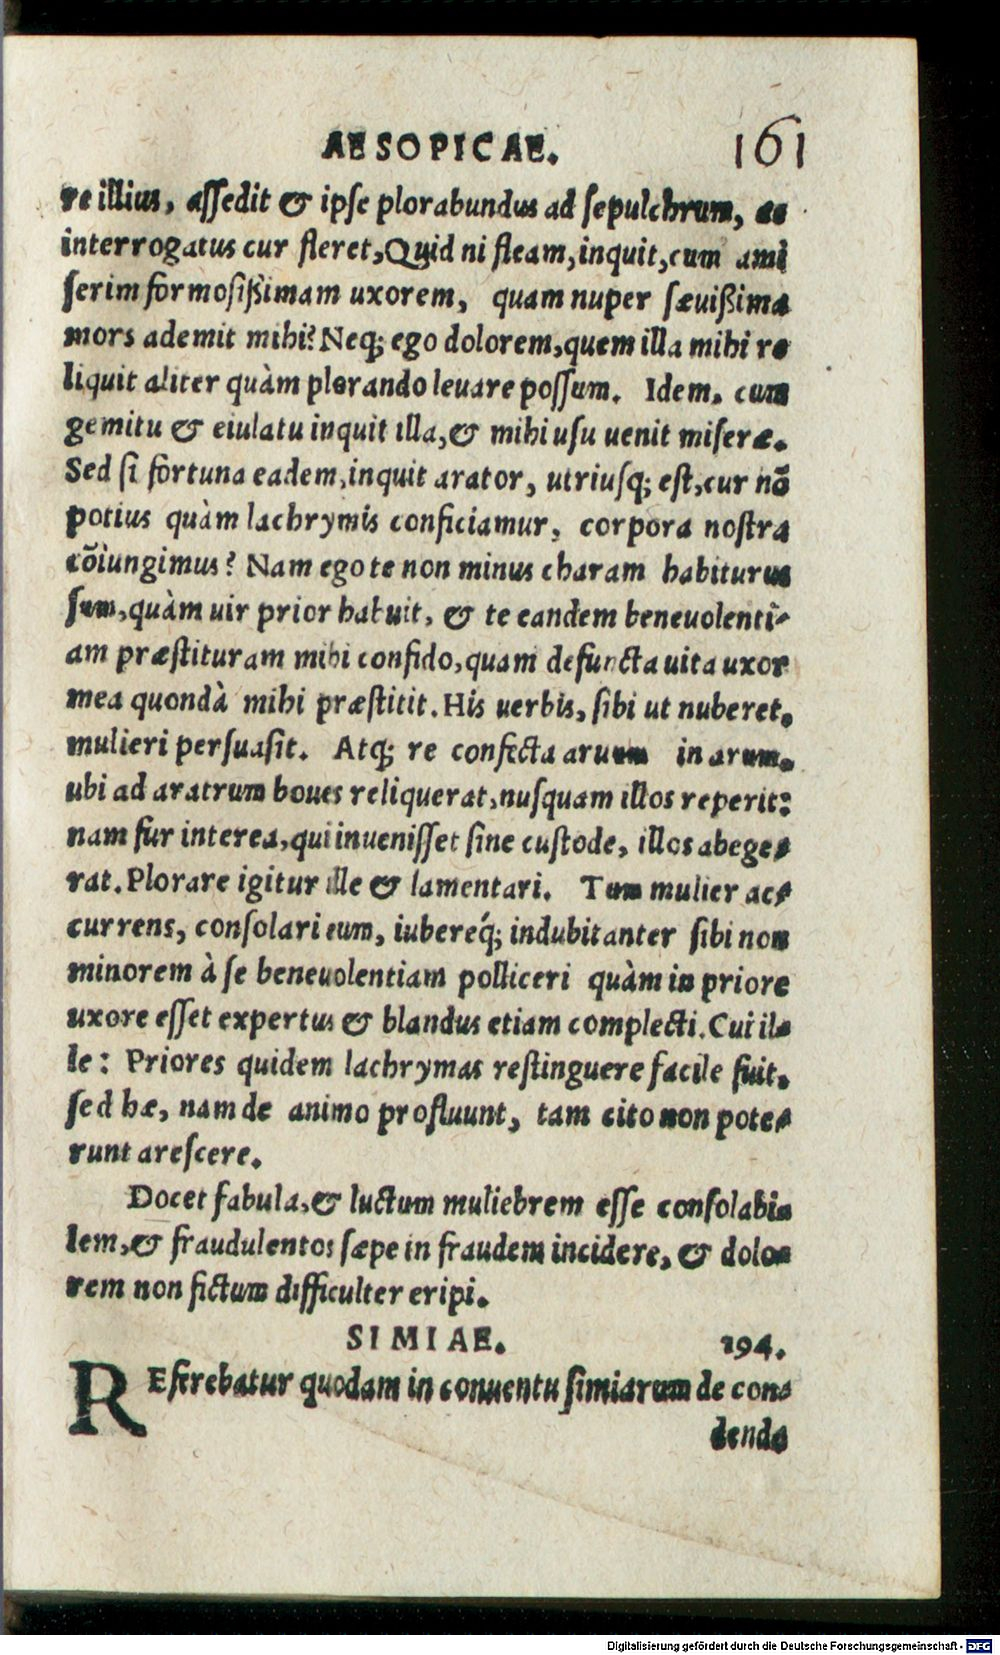 AESOPICAE. 161
re illius, assedit & ipse plorabundus ad sepulchrum, ac
interrogatus cur fleret, Quid ni fleam, inquit, cum ami
serim formosißimam uxorem, quam nuper sæuißima
mors ademit mihi? Neq; ego dolorem, quem illa mihi re
liquit aliter quàm plorando leuare possum. Idem. cum
gemitu & eiulatu inquit illa, & mihi usu uenit miseræ.
Sed si fortuna eadem, inquit arator, utriusq; est, cur nõ
potius quàm lachrymis conficiamur, corpora nostra
cõiungimus? Nam ego te non minus charam habiturus
sum, quàm uir prior habuit, & te eandem beneuolenti-
am præstituram mihi confido, quam defuncta uita uxor
mea quondà mihi præstitit. His uerbis, sibi ut nuberet,
mulieri persuasit. Atq; re confecta aruum in arum,
ubi ad aratrum boues reliquerat, nusquam illos reperit:
nam fur interea, qui inuenisset sine custode, illos abege-
rat. Plorare igitur ille & lamentari. Tum mulier ac-
currens, consolari eum, iubereq́; indubitanter sibi non
minorem à se beneuolentiam polliceri quàm in priore
uxore esset expertus & blandus etiam complecti. Cui il-
le: Priores quidem lachrymas restinguere facile fuit,
sed hæ, nam de animo profluunt, tam cito non pote-
runt arescere.
Docet fabula, & luctum muliebrem esse consolabi-
lem, & fraudulentos sæpe in fraudem incidere, & dolo-
rem non fictum difficulter eripi.
SIMIAE. 194.
REferebatur quodam in conuentu simiarum de con-
dende
Digitalisierung gefördert durch die Deutsche Forschungsgemeinschaft - DFG